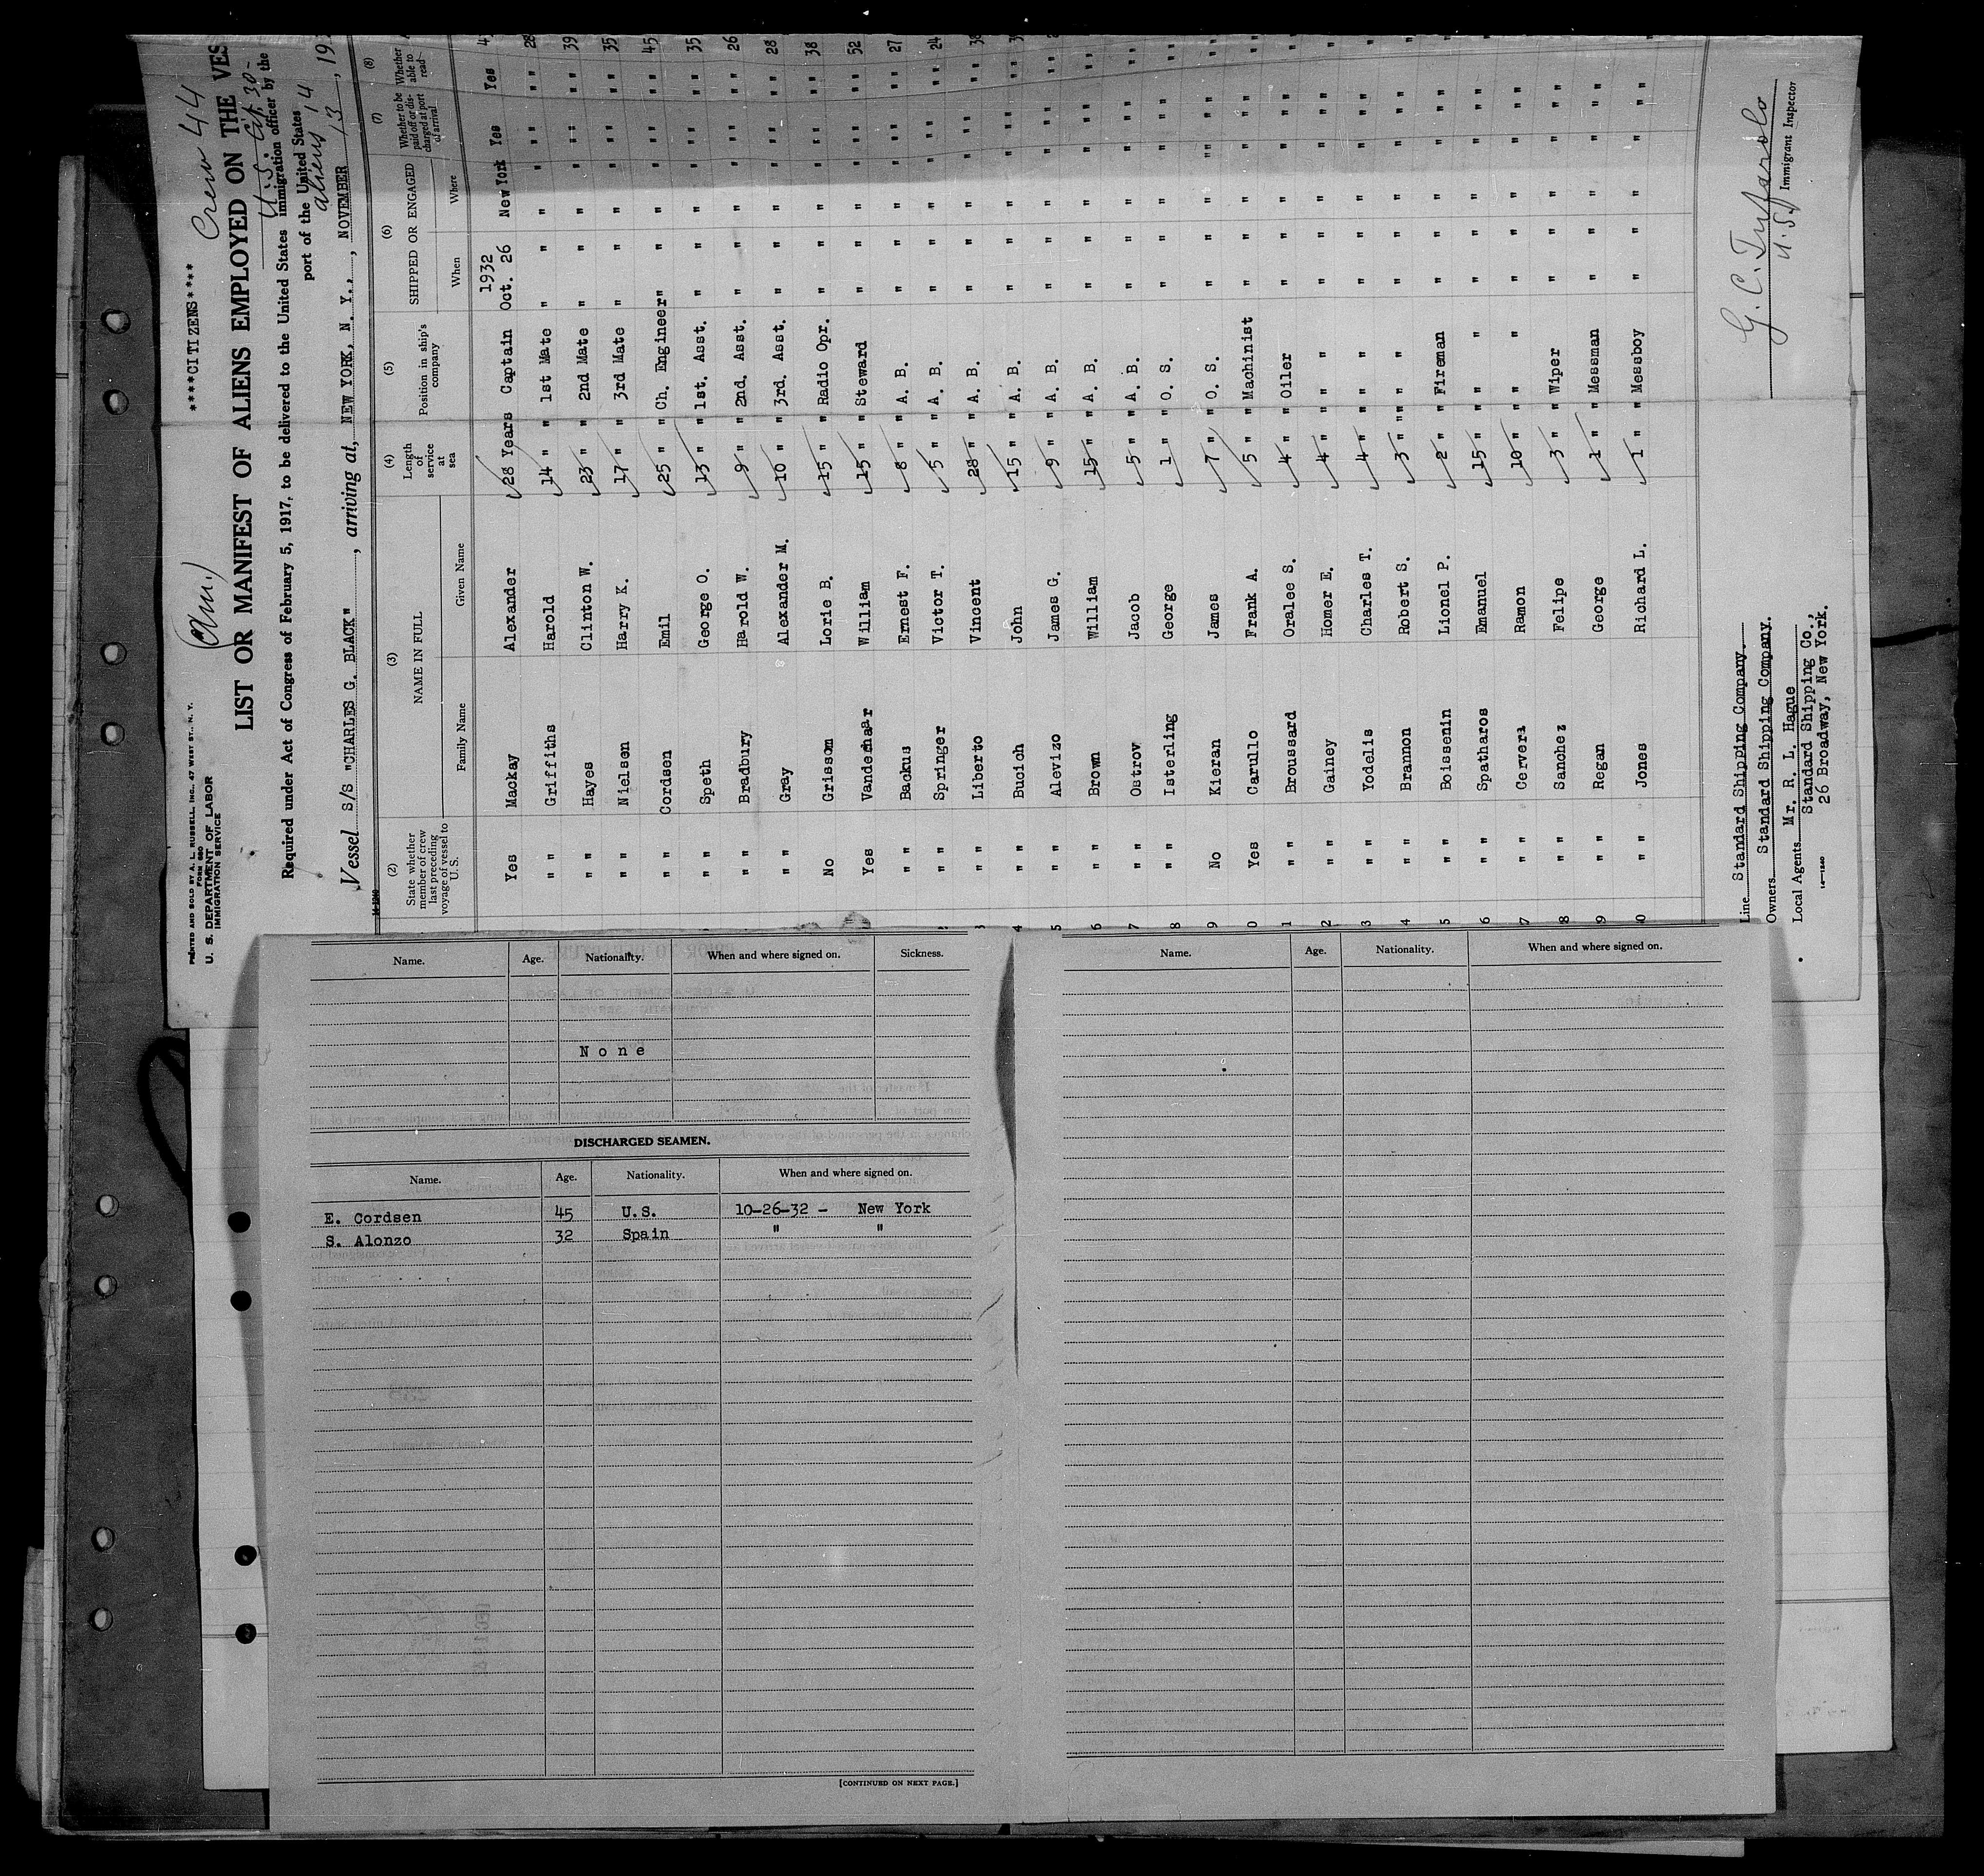 PRINTED AND SOLD BY A. L. RUSSELL, INC., 47 WEST ST., N. Y.
FORM 680
U. S. DEPARTMENT OF LABOR
IMMIGRATION SERVICE
(Am.)
****CITIZENS****
Crew 44
LIST OR MANIFEST OF ALIENS EMPLOYED ON THE VES
U.S. Cit 30-
Required under Act of Congress of February 5, 1917, to be delivered to the United States immigration officer by the
port of the United States
aliens 14
Vessel S/S "CHARLES G. BLACK", arriving at, NEW YORK, N. Y., NOVEMBER 13, 19
14-1240
(2) (3) (4) (5) (6) (7) (8)
State whether member of crew last preceding voyage of vessel to U. S. NAME IN FULL Length of service at sea Position in ship's company SHIPPED OR ENGAGED Whether to be paid off or discharged at port of arrival Whether able to read
Family Name Given Name When Where
1932
Yes Mackay Alexander 28 Years Captain Oct. 26 New York Yes Yes
" " Griffiths Harold 14 " " 1st Mate " " " " " " " " 28
" " Hayes Clinton W. 23 " " 2nd Mate " " " " " " " " 39
" " Nielsen Harry K. 17 " " 3rd Mate " " " " " " " " 35
" " Cordsen Emil 25 " " Ch. Engineer" " " " " " " " 45
" " Speth George O. 13 " " 1st. Asst. " " " " " " " " 35
" " Bradbury Harold W. 9 " " 2nd. Asst. " " " " " " " " 26
" " Gray Alexander M. 10 " " 3rd. Asst. " " " " " " " " 28
No Grissom Lorie B. 15 " " Radio Opr. " " " " " " " " 38
Yes Vandehaar William 15 " " Steward " " " " " " " " 52
" " Backus Ernest F. 8 " " A. B. " " " " " " " " 27
" " Springer Victor T. 5 " " A. B. " " " " " " " " 24
" " Liberto Vincent 28 " " A. B. " " " " " " " "
4 " " Bucich John 15 " " A. B. " " " " " " " "
5 " " Alevizo James G. 9 " " A. B. " " " " " " " "
6 " " Brown William 15 " " A. B. " " " " " " " "
7 " " Ostrov Jacob 5 " " A. B. " " " " " " " "
8 " " Isterling George 1 " " O. S. " " " " " " " "
9 No Kieran James 7 " " O. S. " " " " " " " "
0 Yes Carullo Frank A. 5 " " Machinist " " " " " " " "
1 " " Broussard Oralee S. 4 " " Oiler " " " " " " " "
2 " " Gainey Homer E. 4 " " " " " " " " " " "
3 " " Yodelis Charles T. 4 " " " " " " " " " " "
4 " " Brannon Robert S. 3 " " " " " " " " " " " "
5 " " Boissenin Lionel P. 2 " " Fireman " " " " " " " "
6 " " Spatharos Emanuel 15 " " " " " " " " " " "
7 " " Cervera Ramon 10 " " " " " " " " " " "
8 " " Sanchez Felipe 3 " " Wiper " " " " " " " "
9 " " Regan George 1 " " Messman " " " " " " " "
0 " " Jones Richard L. 1 " " Messboy " " " " " " " "
Line Standard Shipping Company.
Owners Standard Shipping Company.
Local Agents Mr. R. L. Hague
Standard Shipping Co.,
26 Broadway, New York.
14-1240
U.S. Immigrant Inspector
Name. Age. Nationality. When and where signed on. Sickness.
None
DISCHARGED SEAMEN.
Name. Age. Nationality. When and where signed on.
E. Cordsen 45 U.S. 10-26-32 - New York
S. Alonzo 32 Spain " "
[CONTINUED ON NEXT PAGE.]
Name. Age. Nationality. When and where signed on.